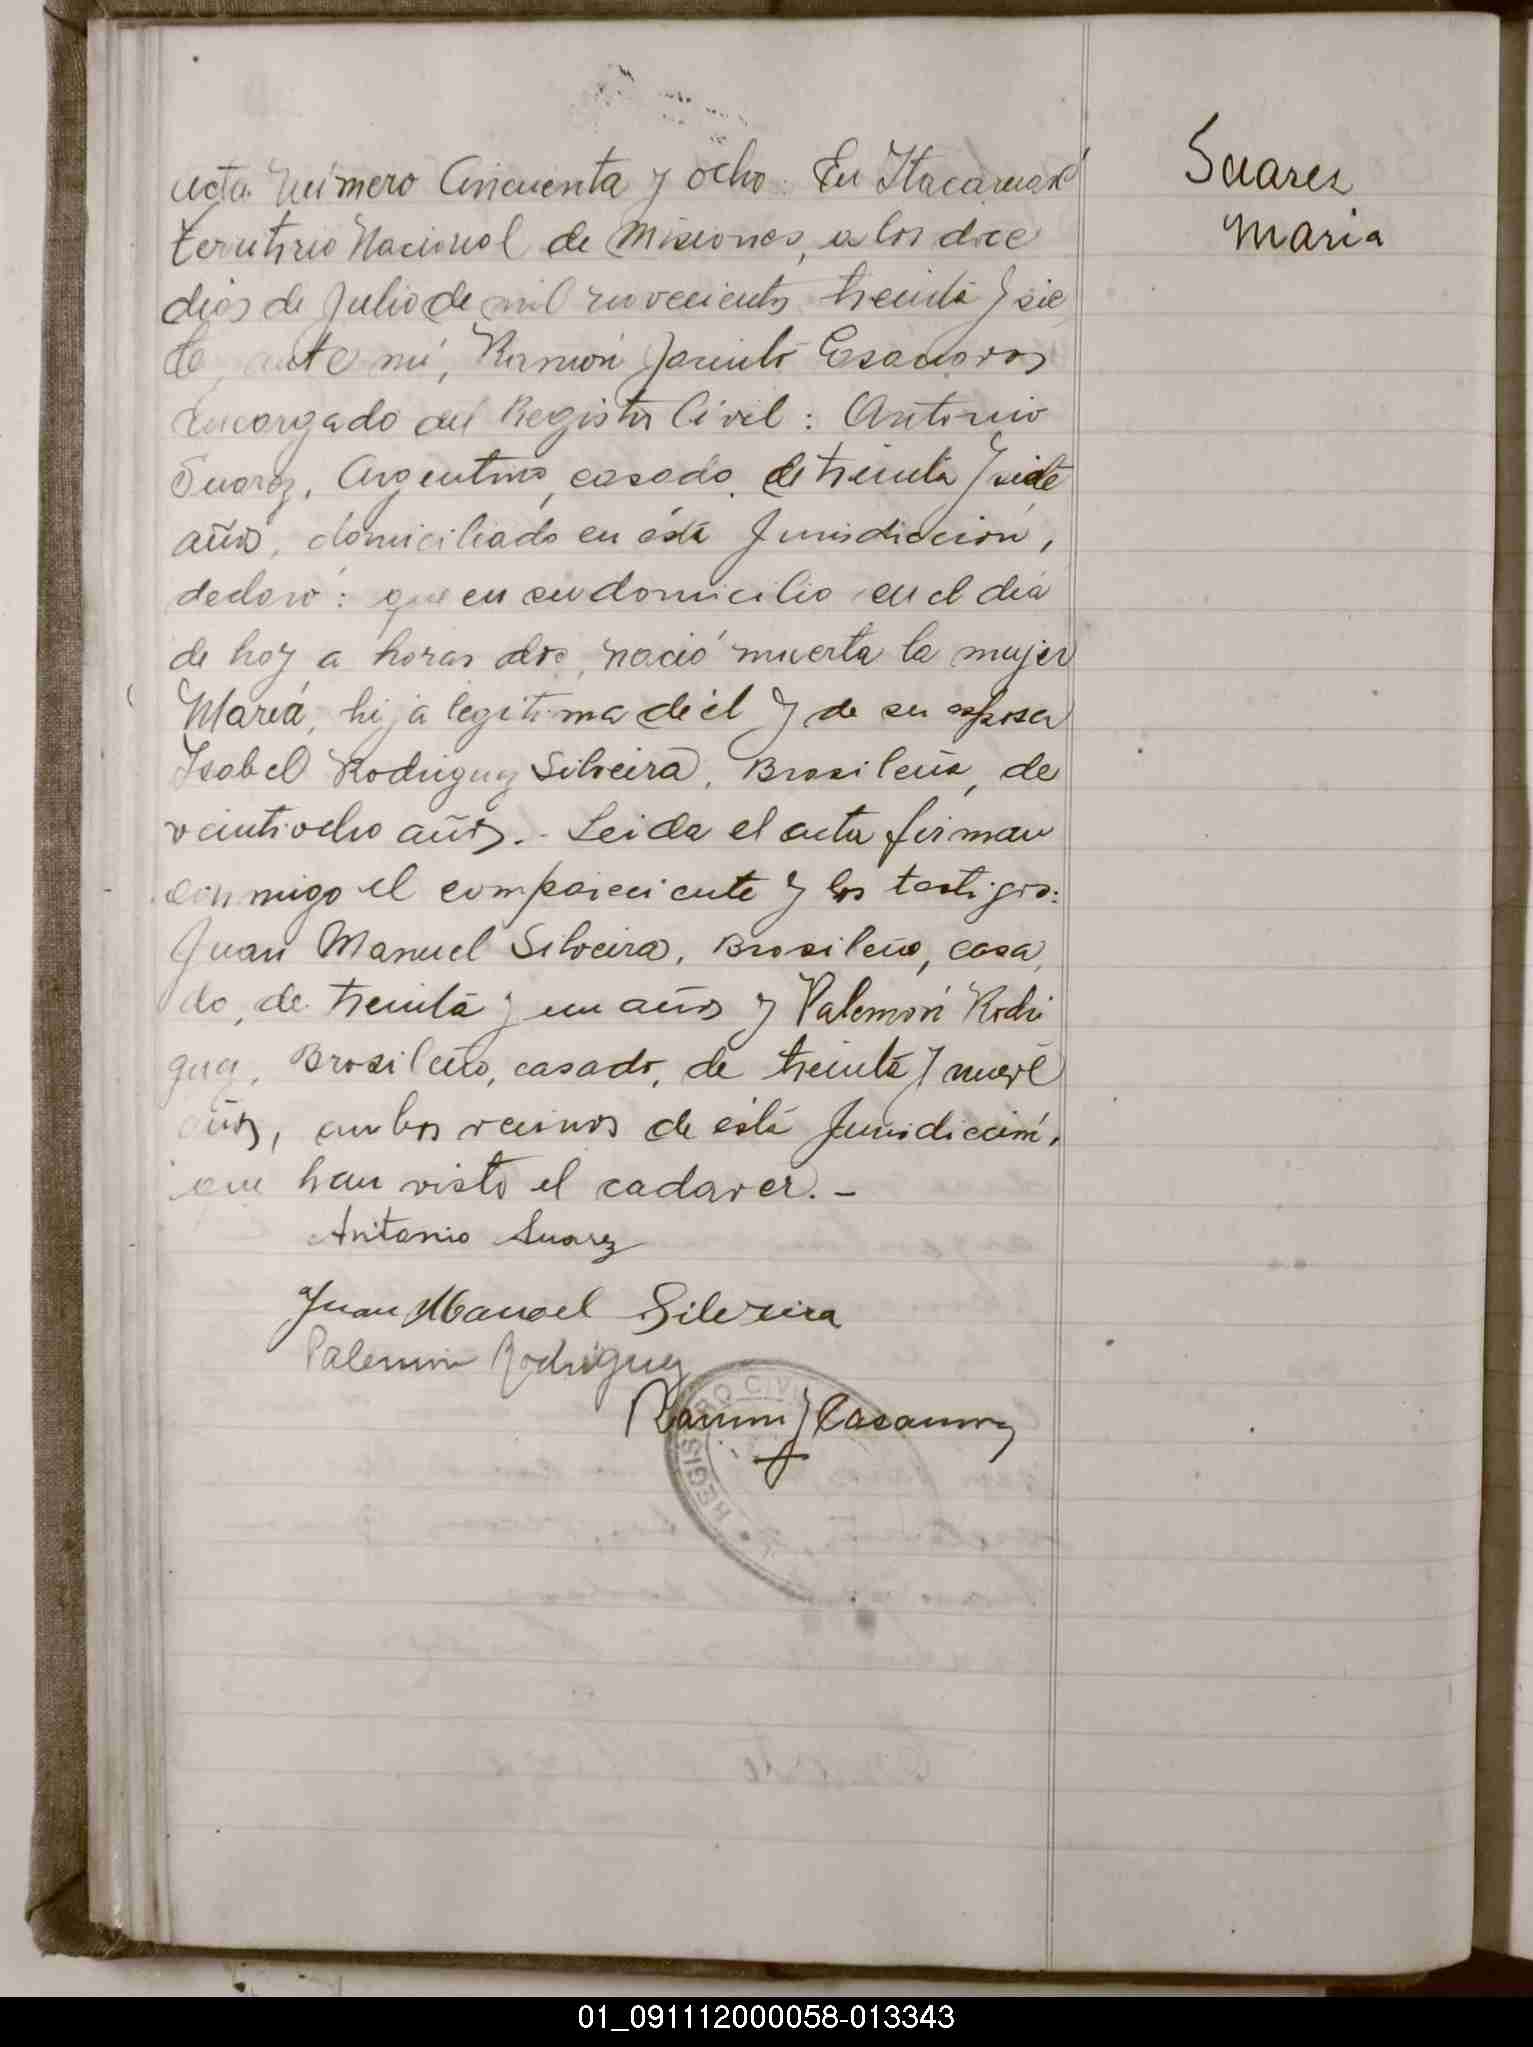 Suarez
Maria
acta Número Cincuenta y ocho. En Itacaruaré
Territorio Nacional de Misiones, a los doce
dias de Julio de mil novecientos treinta y sie
te, ante mi, Ramón Jacinto Casanova
encargado del Registro Civil: Antonio
Suarez, Argentino, casado, de treinta y siete
años, domiciliado en ésta Jurisdicción,
declaró: que en su domicilio en el día
de hoy a horas dos, nació muerta la mujer
María, hija legitima de él y de su esposa
Isabel Rodriguez Silveira, Brasileña, de
veintiocho años.- Leida el acta firman
conmigo el compareciente y los testigos:
Juan Manuel Silveira, Brasileño, casa
do, de treinta y un años y Palemón Rodri
guez, Brasileño, casado, de treinta y nueve
años, ambos vecinos de ésta Jurisdicción,
que han visto el cadaver.-
Antonio Suarez
Juan Manoel Silveira
Palemon Rodriguez
Ramon J Casanova
REGIS RO CIVI
01_091112000058-013343